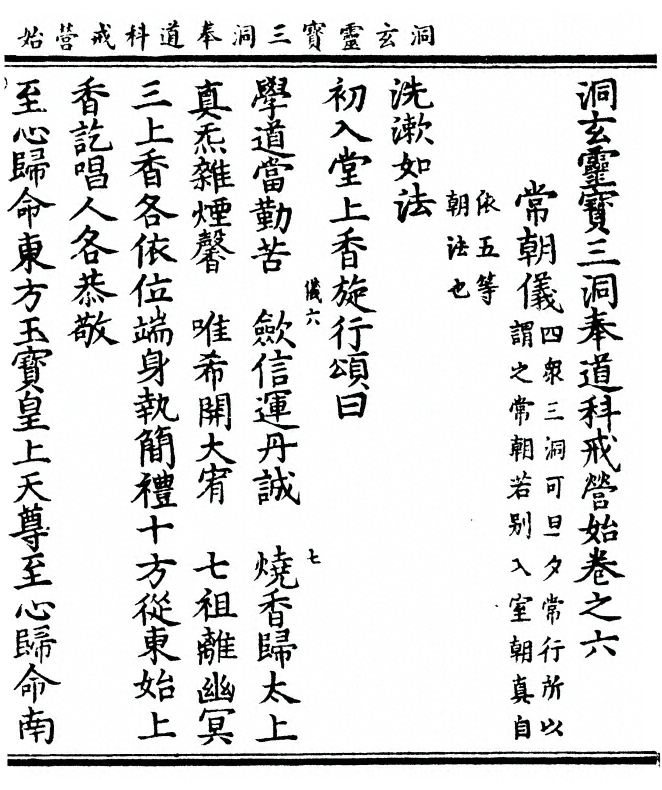 洞玄靈寶三洞奉道科戒營始
洞玄靈寶三洞奉道科戒營始卷之六
常朝儀
四衆三洞可旦夕常行所以
謂之常朝若别入室朝真自
依五等
朝法也
洗漱如法
初入堂上香旋行頌曰
儀六
七
學道當勤苦　歛信運丹誠　燒香歸太上
真炁雜煙馨　唯希開大宥　七祖離幽冥
三上香各依位端身執簡禮十方從東始上
香訖唱人各恭敬
至心歸命東方玉寶皇上天尊至心歸命南